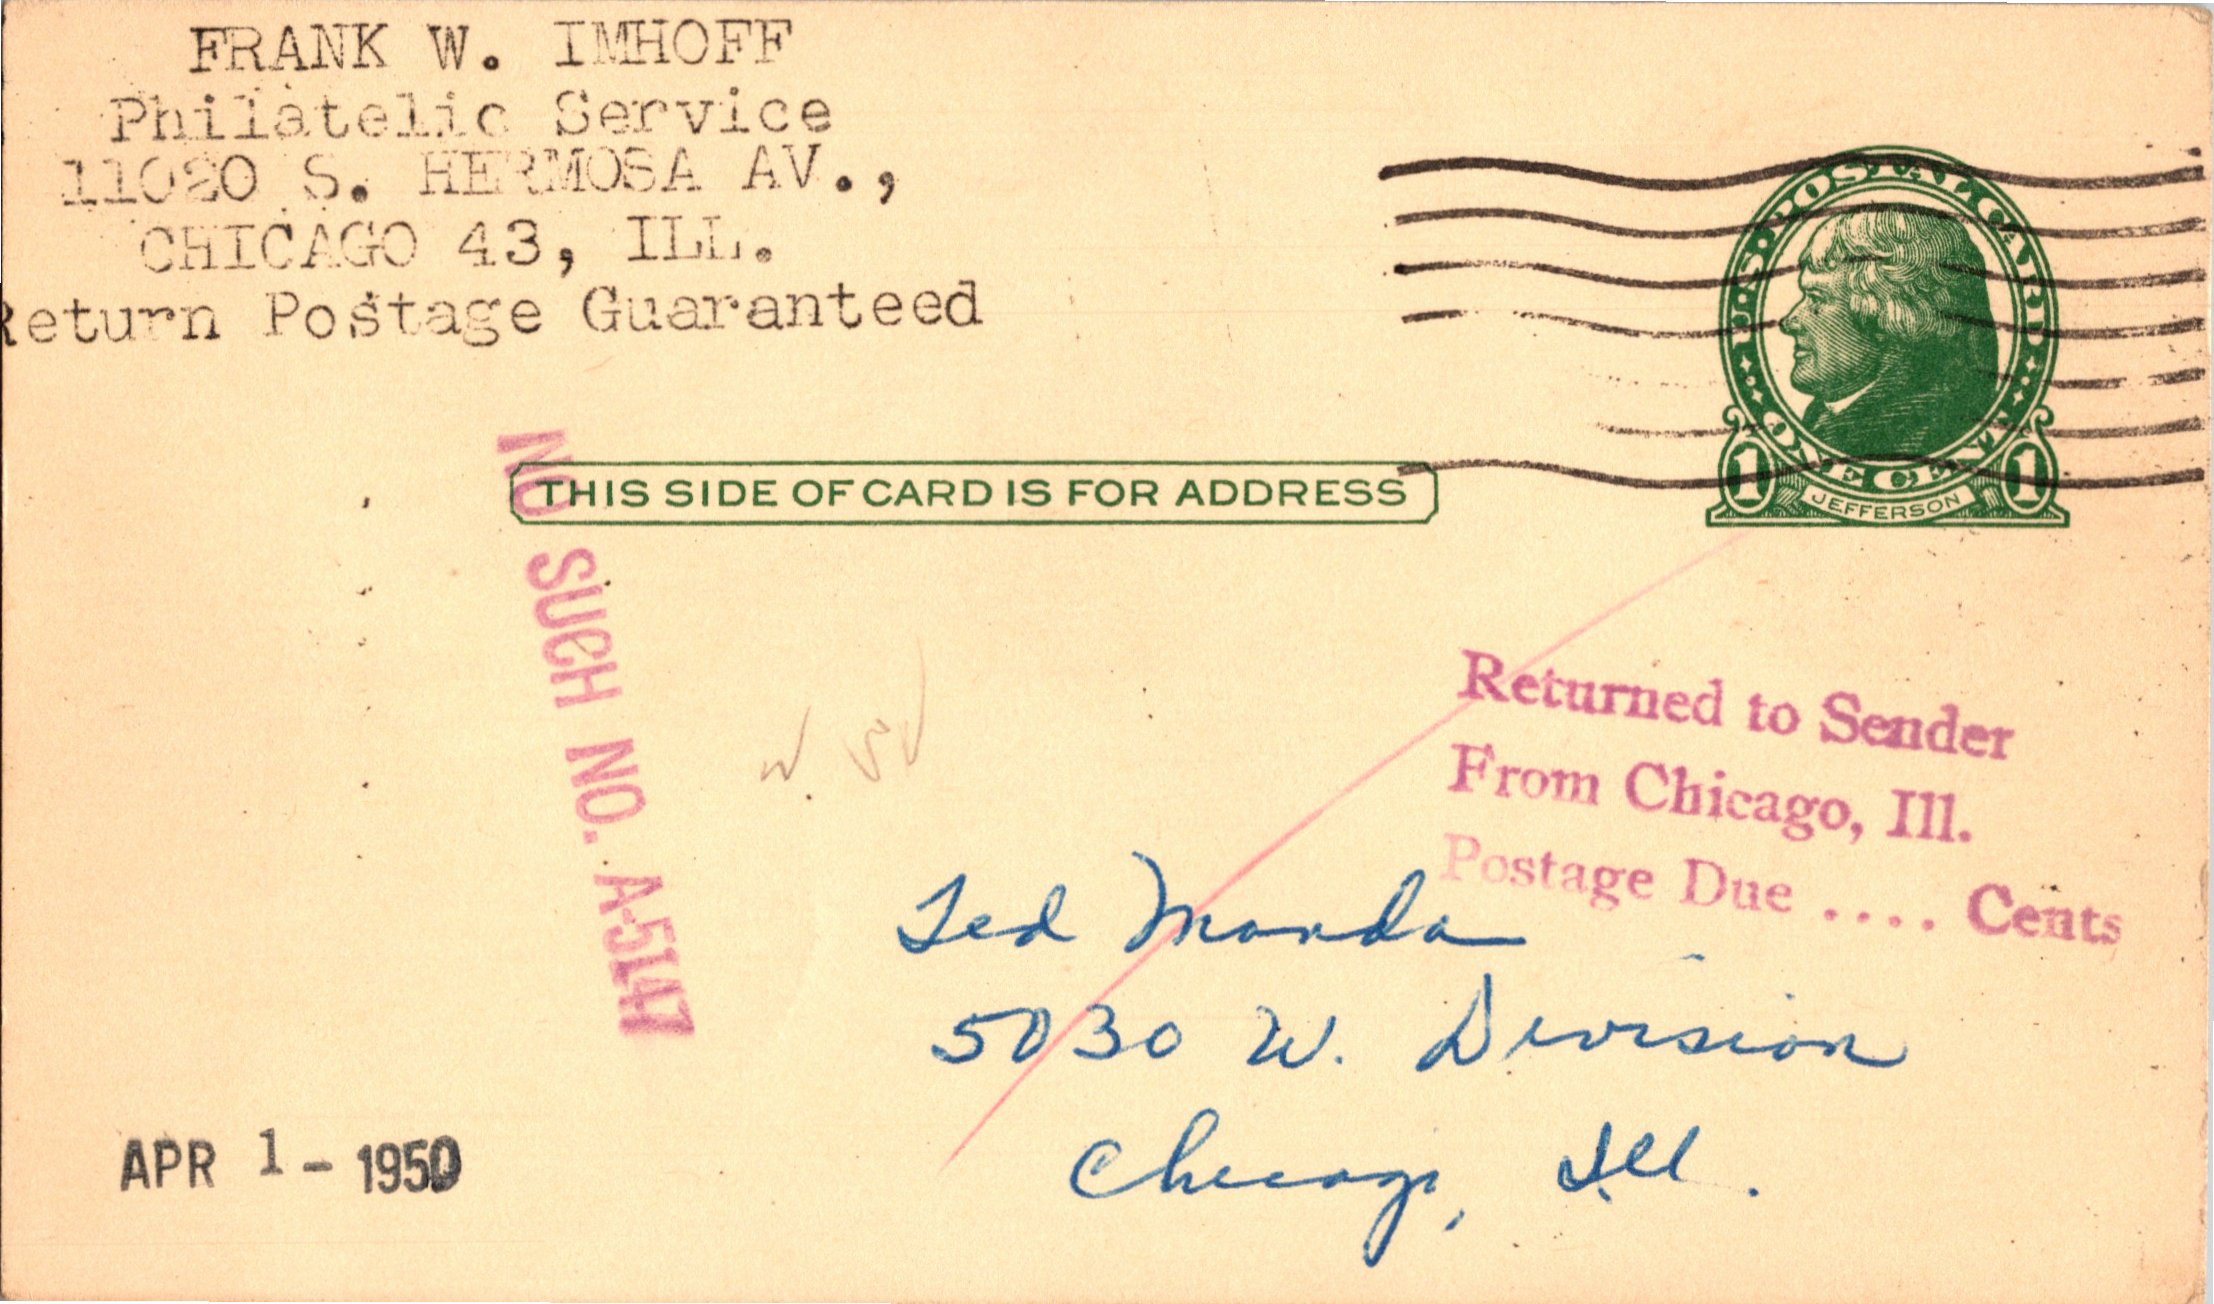 FRANK W. IMHOFF
Philatelic Service
11020 S. HERMOSA AV.,
CHICAGO 43, ILL.
Return Postage Guaranteed
U.S. POSTAL CARD
ONE CENT
1 JEFFERSON 1
THIS SIDE OF CARD IS FOR ADDRESS
NO SUCH NO. A-5147
Returned to Sender
From Chicago, Ill.
Postage Due .... Cents
Ted Manda
5030 W. Division
Chicago, Ill.
APR 1 - 1950